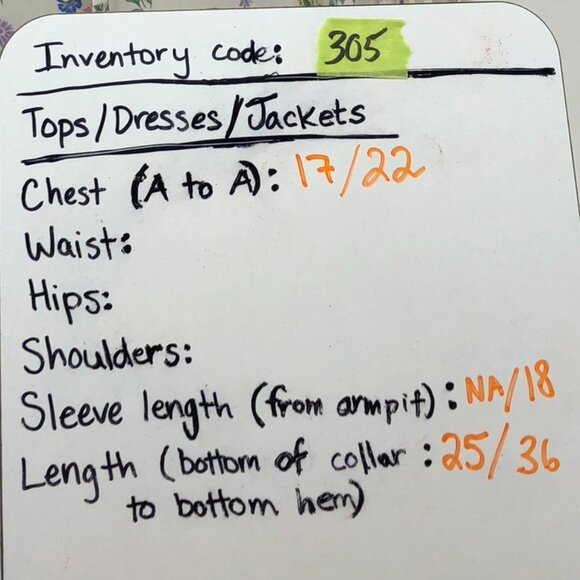 Inventory code: 305
Tops/Dresses/Jackets
Chest (A to A): 17/22
Waist:
Hips:
Shoulders:
Sleeve length (from armpit): NA/18
Length (bottom of collar : 25/36
to bottom hem)